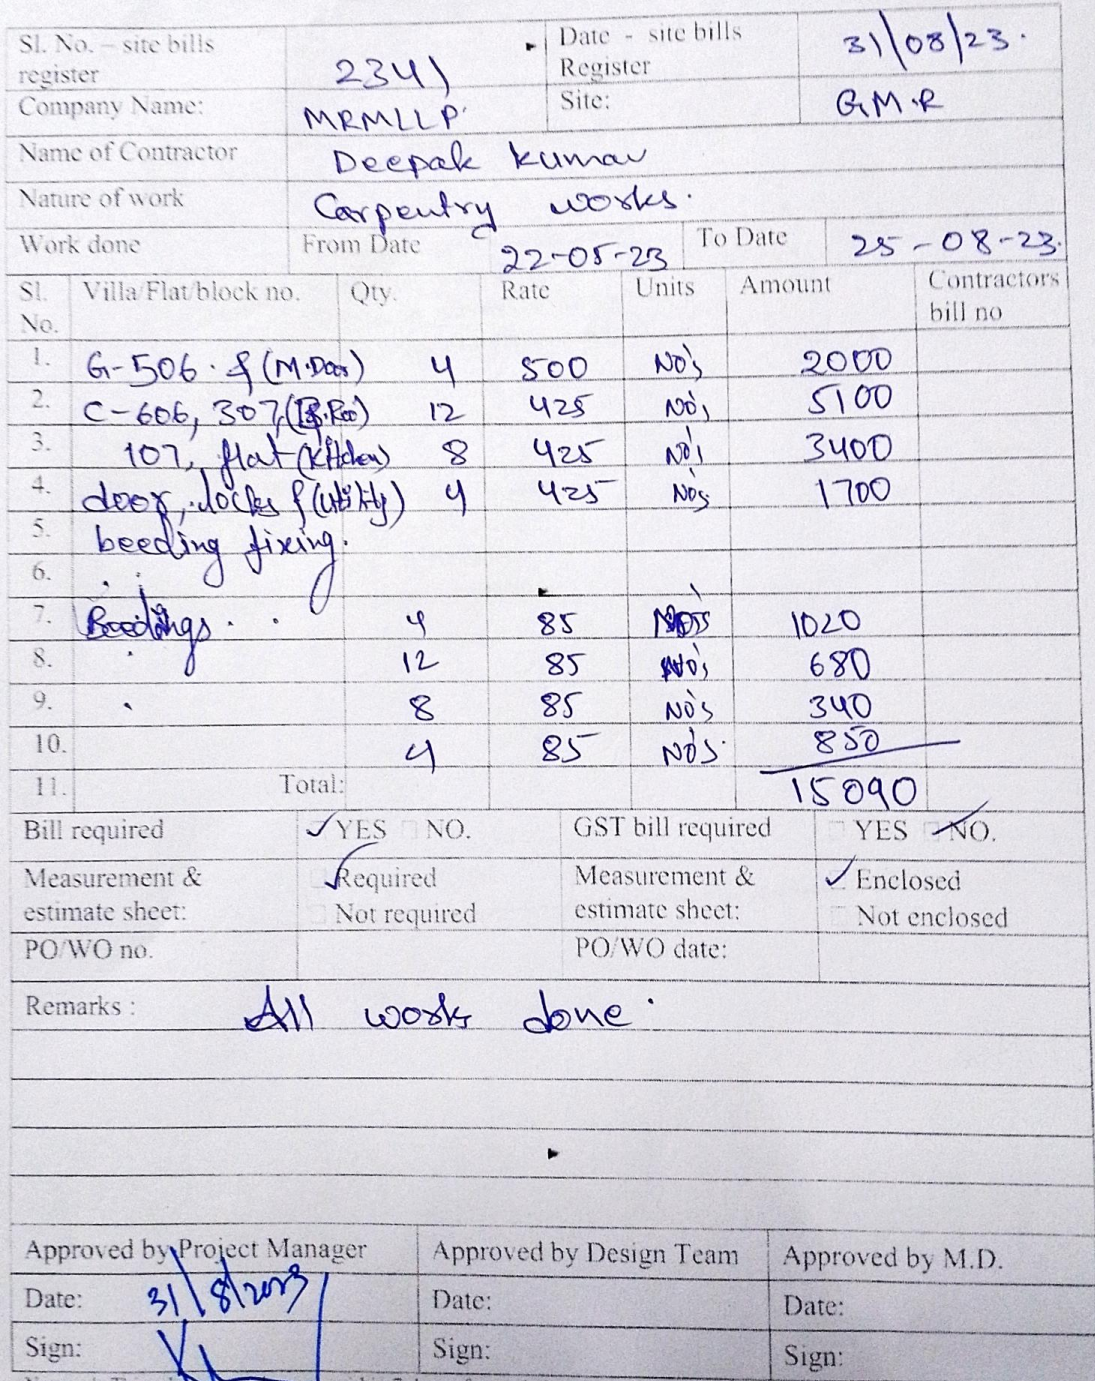 Sl. No. – site bills register 2341 Date - site bills Register 31/08/23.
Company Name: MRMLLP Site: GMR
Name of Contractor Deepak Kumar
Nature of work Carpentry works.
Work done From Date 22-05-23 To Date 25-08-23.
Sl. No. Villa/Flat/block no. Qty. Rate Units Amount Contractors bill no
1. G-506. & (M.Door) 4 500 No's 2000
2. C-606, 307, 12 425 No's 5100
3. 107, flat (Kitchen) 8 425 No's 3400
4. door, locks & (Utility) 4 425 No's 1700
5. beeding fixing.
6.
7. Beedings. 4 85 Nos 1020
8. 12 85 No's 680
9. 8 85 No's 340
10. 4 85 No's. 850
11. Total: 15090
Bill required YES NO. GST bill required YES NO.
Measurement & estimate sheet: Required Measurement & estimate sheet: Enclosed
Not required Not enclosed
PO/WO no. PO/WO date:
Remarks : All works done.
Approved by Project Manager Approved by Design Team Approved by M.D.
Date: 31/8/2023 Date: Date:
Sign: Sign: Sign: